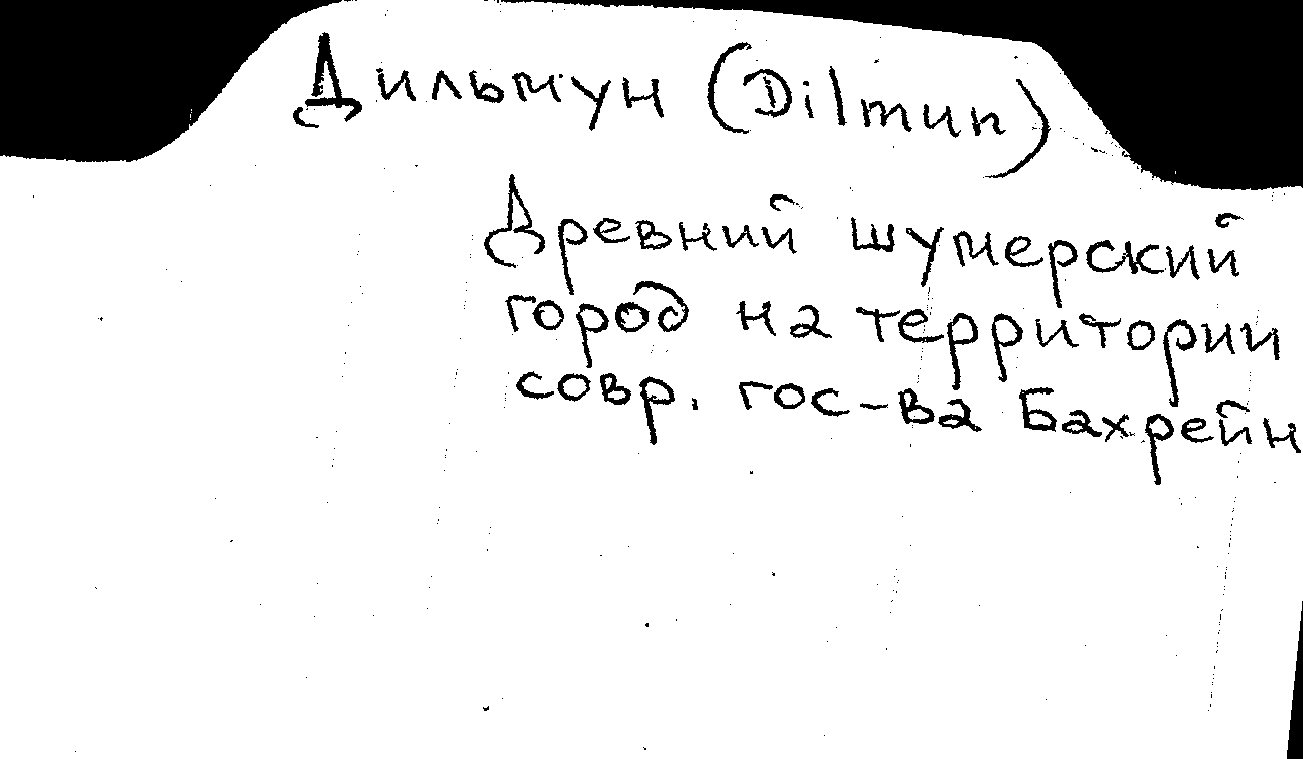 Дильмун (Dilmun)
Древний шумерский
город на территории
совр. гос-ва Бахрейн